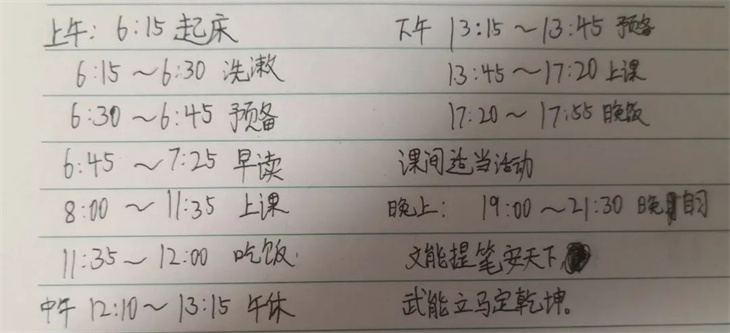 上午: 6:15 起床
6:15~6:30 洗漱
6:30~6:45 预备
6:45~7:25 早读
8:00~11:35 上课
11:35~12:00 吃饭
中午 12:10~13:15 午休
下午 13:15~13:45 预备
13:45~17:20 上课
17:20~17:55 晚饭
课间适当活动
晚上: 19:00~21:30 晚自习
文能提笔安天下
武能立马定乾坤。